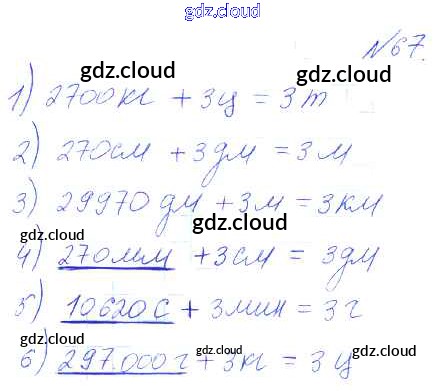 gdz.cloud
№67.
gdz.cloud gdz.cloud
1) 2700 кг + 3ц = 3т
gdz.cloud
2) 270см + 3дм = 3м
3) 29970 дм + 3м = 3км
gdz.cloud gdz.cloud
4) 270мм + 3см = 3дм
gdz.cloud
5) 10620 с + 3мин = 3г
gdz.cloud gdz.cloud gdz.cloud
6) 297.000 г + 3кг = 3ц